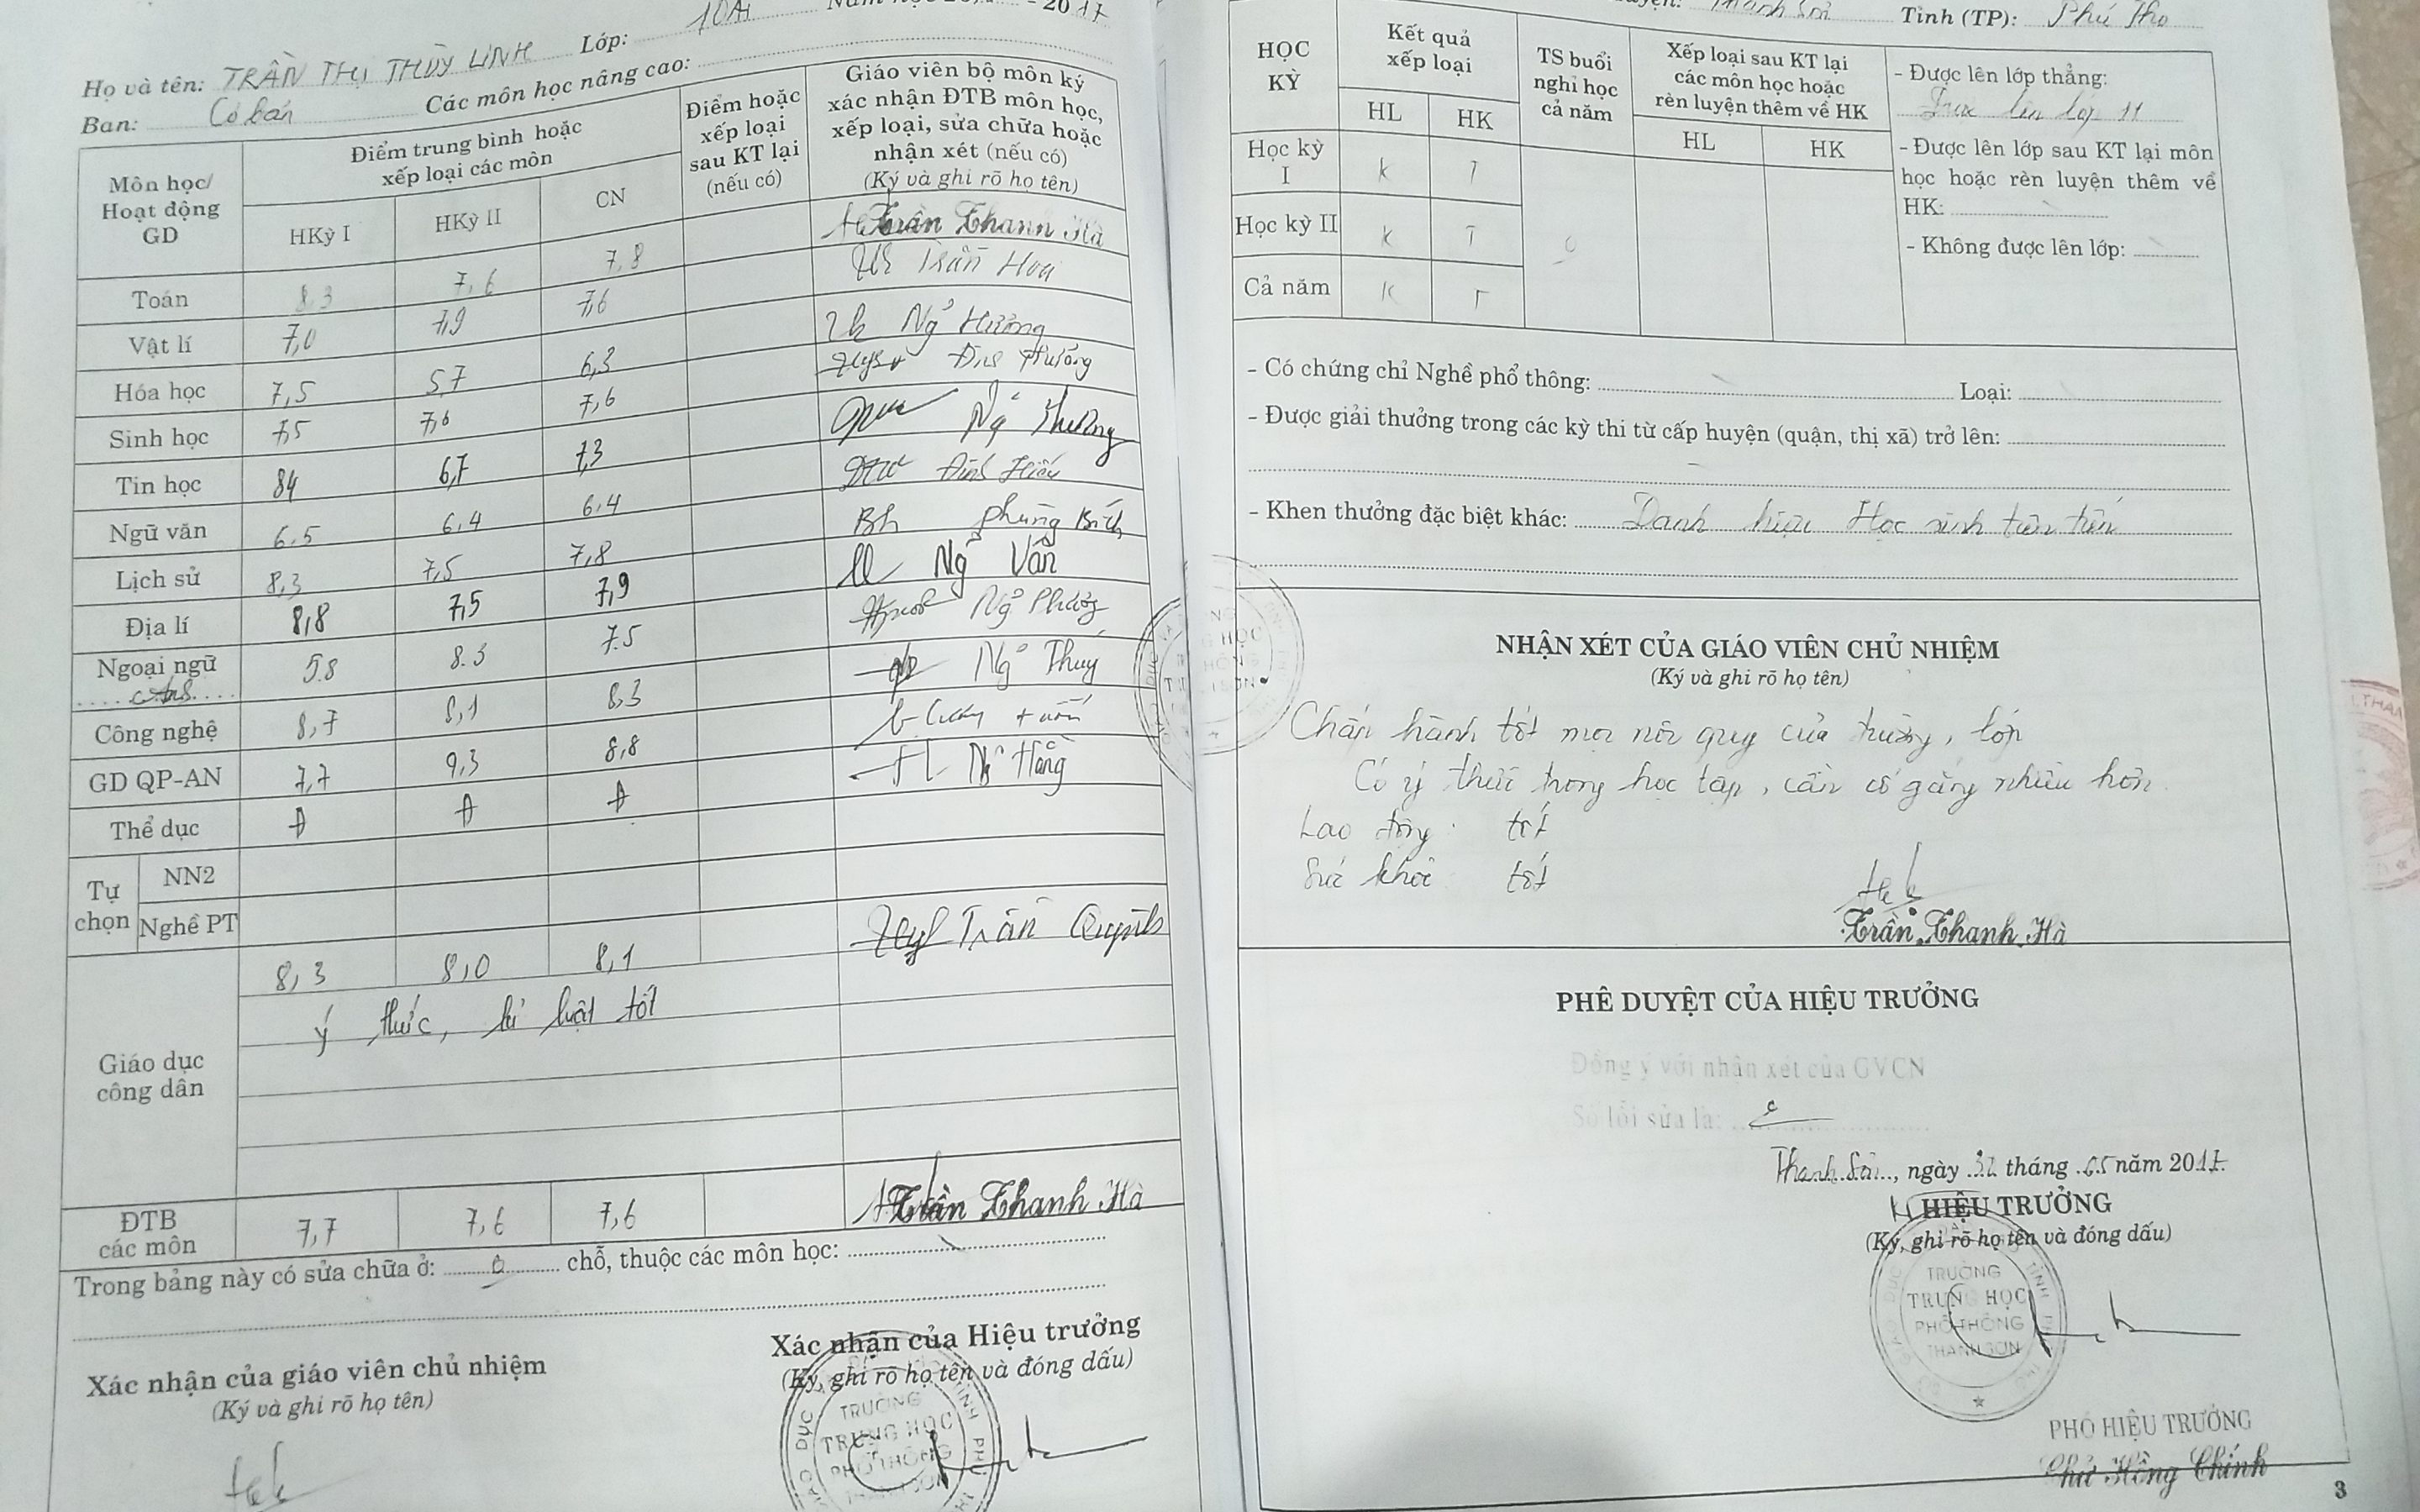 10A1 Năm học - 2017
Họ và tên: TRẦN THỊ THÙY LINH Lớp:
Ban: Cơ bản Các môn học nâng cao:
Môn học/ Hoạt động GD
Điểm trung bình hoặc xếp loại các môn
Điểm hoặc xếp loại sau KT lại (nếu có)
Giáo viên bộ môn ký xác nhận ĐTB môn học, xếp loại, sửa chữa hoặc nhận xét (nếu có) (Ký và ghi rõ họ tên)
HKỳ I HKỳ II CN
Toán 8.3 7,6 7,8 Trần Thanh Hà
Vật lí 7,0 7,9 7,6 Trần Hoa
Hóa học 7,5 5,7 6,3 Ng Hương
Sinh học 7,5 7,6 7,6 Đinh Phương
Tin học 84 6,7 7,3 Ng Thương
Ngữ văn 6.5 6.4 6.4 Đinh Hiếu
Lịch sử 8,3 7,5 7,8 Bh Phùng Bích
Địa lí 8,8 7,5 7,9 Ng Vân
Ngoại ngữ 5.8 8.3 7.5 Ng Phương
Anh
Công nghệ 8,7 8,1 8,3 Ng Thúy
GD QP-AN 7,7 9,3 8,8
Thể dục Đ Đ Đ Ng Hằng
Tự chọn
NN2
Nghề PT
Giáo dục công dân 8,3 8,0 8,1 Trần Quỳnh
ý thức, kỉ luật tốt
ĐTB các môn 7,7 7,6 7,6 Trần Thanh Hà
Trong bảng này có sửa chữa ở: 0 chỗ, thuộc các môn học:
Xác nhận của giáo viên chủ nhiệm
(Ký và ghi rõ họ tên)
Xác nhận của Hiệu trưởng
(Ký, ghi rõ họ tên và đóng dấu)
TRƯỜNG
TRUNG HỌC
PHỔ THÔNG
THANH SƠN
Thanh Sơn Tỉnh (TP): Phú Thọ
HỌC KỲ
Kết quả xếp loại
TS buổi nghỉ học cả năm
Xếp loại sau KT lại các môn học hoặc rèn luyện thêm về HK
HL HK HL HK
Học kỳ I K T
Học kỳ II K T 0
Cả năm K T
- Được lên lớp thẳng:
Được lên lớp 11
- Được lên lớp sau KT lại môn
học hoặc rèn luyện thêm về
HK:
- Không được lên lớp:
- Có chứng chỉ Nghề phổ thông: Loại:
- Được giải thưởng trong các kỳ thi từ cấp huyện (quận, thị xã) trở lên:
- Khen thưởng đặc biệt khác: Danh hiệu Học sinh tiên tiến
NHẬN XÉT CỦA GIÁO VIÊN CHỦ NHIỆM
(Ký và ghi rõ họ tên)
Chấp hành tốt mọi nội quy của trường, lớp
Có ý thức trong học tập, cần cố gắng nhiều hơn
Lao động: tốt
Sức khỏe tốt
Trần Thanh Hà
PHÊ DUYỆT CỦA HIỆU TRƯỞNG
Đồng ý với nhận xét của GVCN
Số lỗi sửa là:
Thanh Sơn, ngày tháng 05 năm 2017
HIỆU TRƯỞNG
(Ký, ghi rõ họ tên và đóng dấu)
TRƯỜNG
TRUNG HỌC
PHỔ THÔNG
THANH SƠN
PHÓ HIỆU TRƯỞNG
Chử Hồng Chính
3